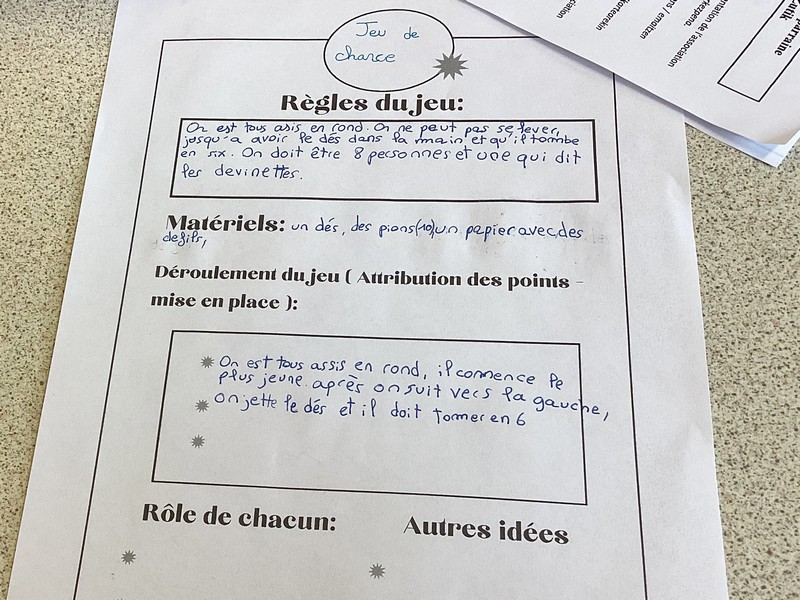 Jeu de
chance
Règles du jeu:
On est tous asis en rond. On ne peut pas se lever,
jusqu'a avoir le dés dans la main et qu'il tombe
en six. On doit être 8 personnes et une qui dit
les devinettes.
Matériels: un dés, des pions(10)un papier avec des
defits,
Déroulement du jeu ( Attribution des points -
mise en place ):
On est tous assis en rond, il commence le
plus jeune. après on suit vers la gauche,
on jette le dés et il doit tomer en 6
Rôle de chacun:
Autres idées
arraine
utik
ntation de l'association
rkezpena
ens / emaitzen
korterrekin
ciation